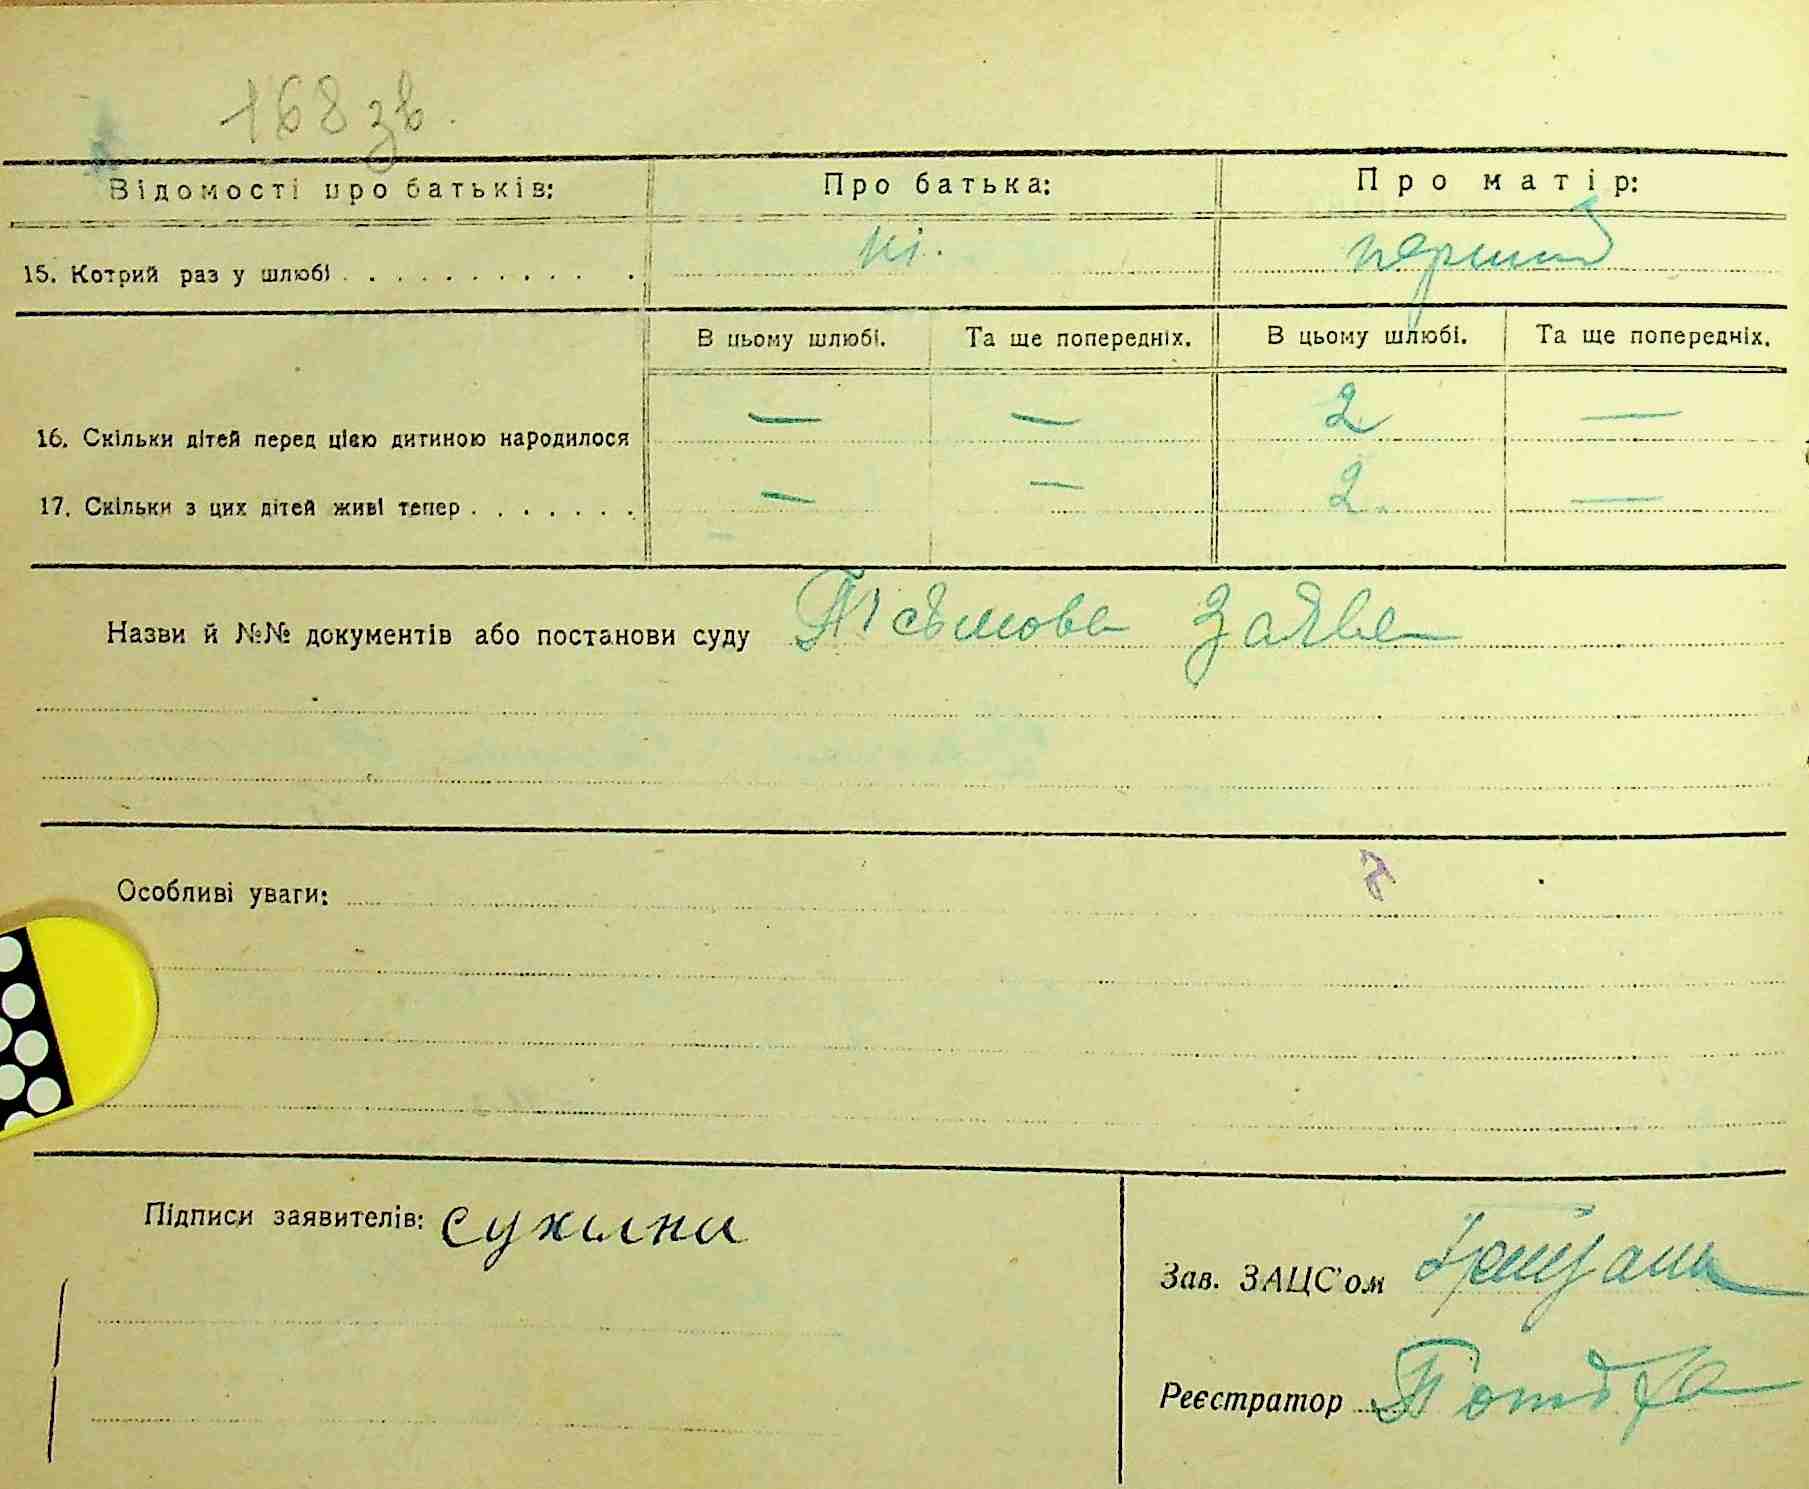 168 зв.
Відомості про батьків: Про батька: Про матір:
15. Котрий раз у шлюбі . . . . . . . . . . . ні. перший
В цьому шлюбі. Та ще попередніх. В цьому шлюбі. Та ще попередніх.
16. Скільки дітей перед цією дитиною народилося — — 2 —
17. Скільки з цих дітей живі тепер . . . . . . . — — 2. —
Назви й №№ документів або постанови суду Пісьмова Заява
Особливі уваги:
Підписи заявителів: сухина
Зав. ЗАЦС'ом
Реєстратор